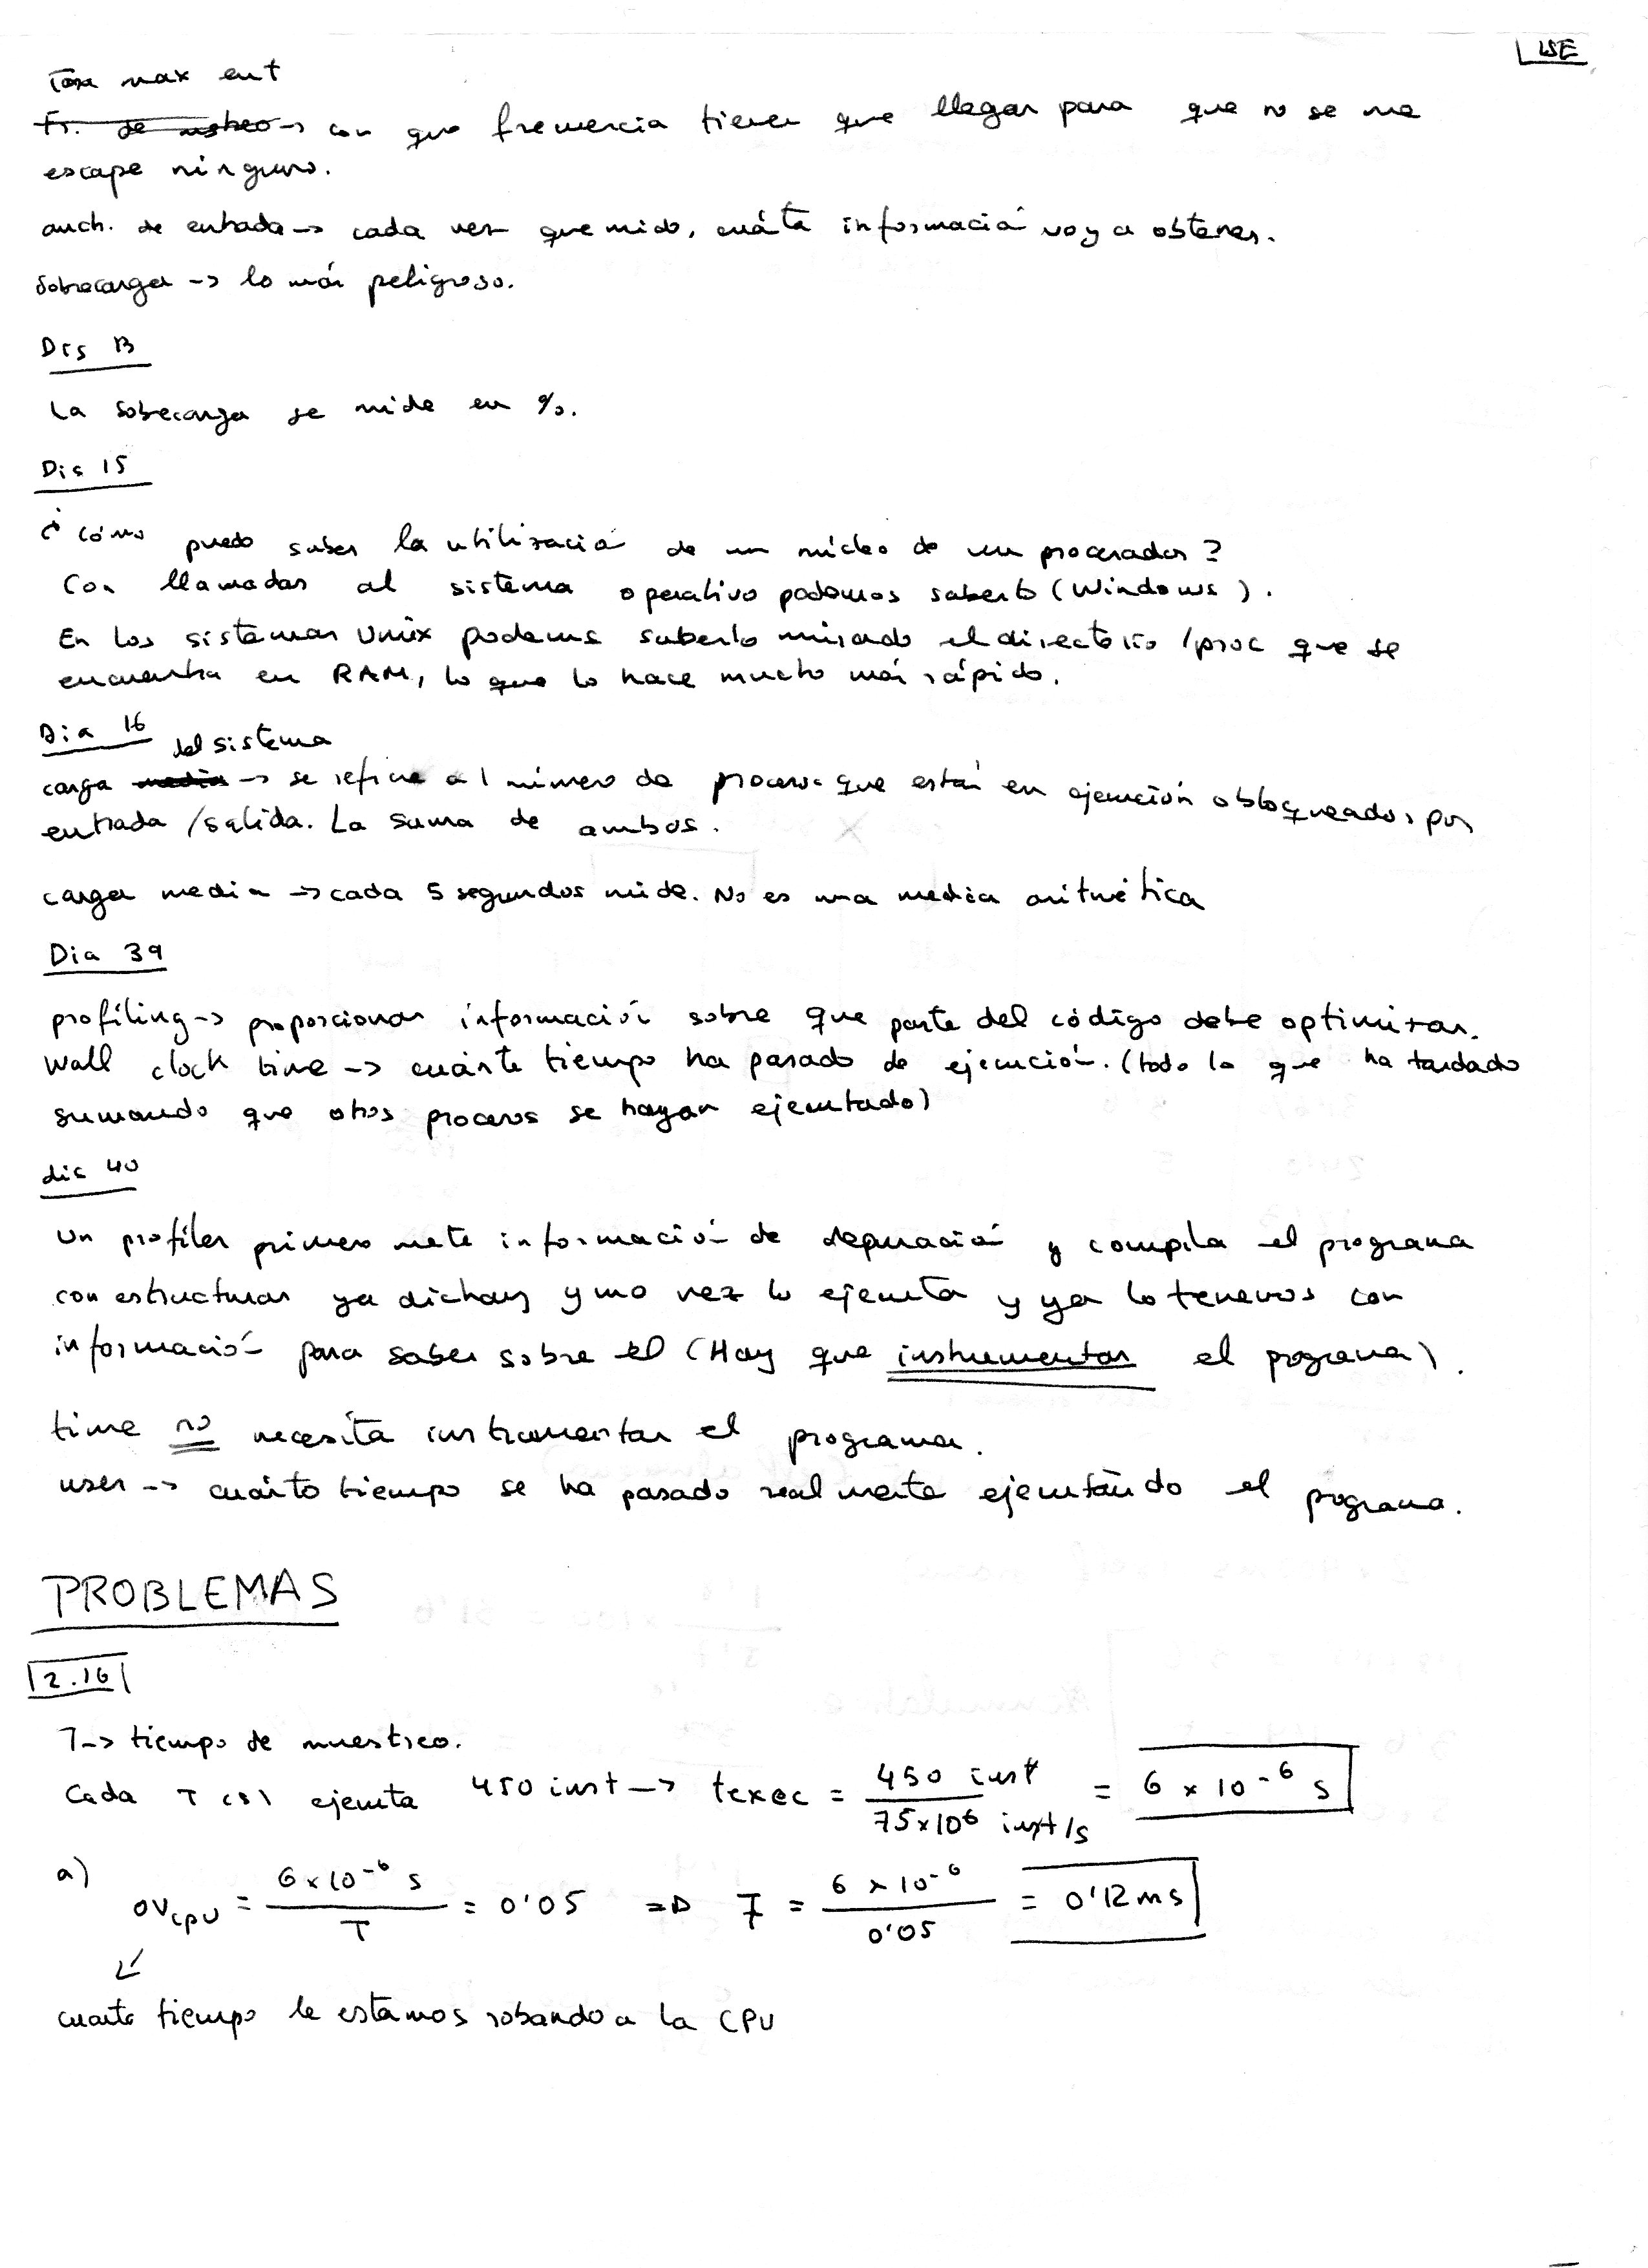 ISE
Tasa max ent
Fr. de mstreo -> con que frecuencia tienen que llegar para que no se me
escape ninguno.
anch. de entrada -> cada vez que mido, cuánta información voy a obtener.
Sobrecarga -> lo más peligroso.
Dis 13
La sobrecarga se mide en %.
Dia 15
¿Cómo puedo saber la utilización de un núcleo de un procesador?
Con llamadas al sistema operativo podemos saberlo (Windows).
En los sistemas Unix podemos saberlo mirando el directorio /proc que se
encuentra en RAM, lo que lo hace mucho más rápido.
Dia 16
del sistema
carga media -> se refiere al número de procesos que están en ejecución o bloqueados por
entrada/salida. La suma de ambos.
carga media -> cada 5 segundos mide. No es una media aritmética
Dia 39
profiling -> proporcionar información sobre que parte del código debe optimizar.
Wall clock time -> cuánto tiempo ha pasado de ejecución. (todo lo que ha tardado
sumando que otros procesos se hayan ejecutado)
dia 40
Un profiler primero mete información de depuración y compila el programa
con estructuras ya dichas y una vez lo ejecuta y ya lo tenemos con
información para saber sobre el (Hay que instrumentar el programa).
time no necesita instrumentar el programa.
user -> cuánto tiempo se ha pasado realmente ejecutando el pograma.
PROBLEMAS
2.16
T -> tiempo de muestreo.
Cada T (s) ejecuta 450 inst -> texec = 450 inst / 75x10^6 inst/s = 6 x 10^-6 s
a) OVcpu = 6x10^-6 s / T = 0'05 => T = 6 x 10^-6 / 0'05 = 0'12 ms
↙
cuanto tiempo le estamos robando a la CPU